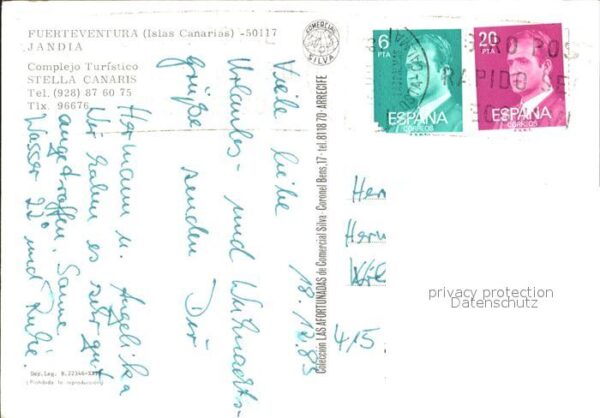 FUERTEVENTURA (Islas Canarias) -50117
JANDIA
Complejo Turístico
STELLA CANARIS
Tel. (928) 87 60 75
Tlx. 96676
COMERCIAL
SILVA
6
PTA
ESPAÑA
CORREOS
20
PTA
ESPAÑA
CORREOS
RO POS
RAPIDO
18.12.85
Viele liebe
Urlaubs- und Weihnachts-
grüße senden Dir
Hermann u. Angelika
Wir haben es sehr gut
angetroffen. Sonne
Wasser 22° und Ruhe.
Colección LAS AFORTUNADAS de Comercial Silva - Coronel Bens, 17 - tel. 81 18 70 - ARRECIFE
Her
Herm
415
privacy protection
Datenschutz
Dep. Leg. B. 22346-XX
(Prohibida la reproducción)